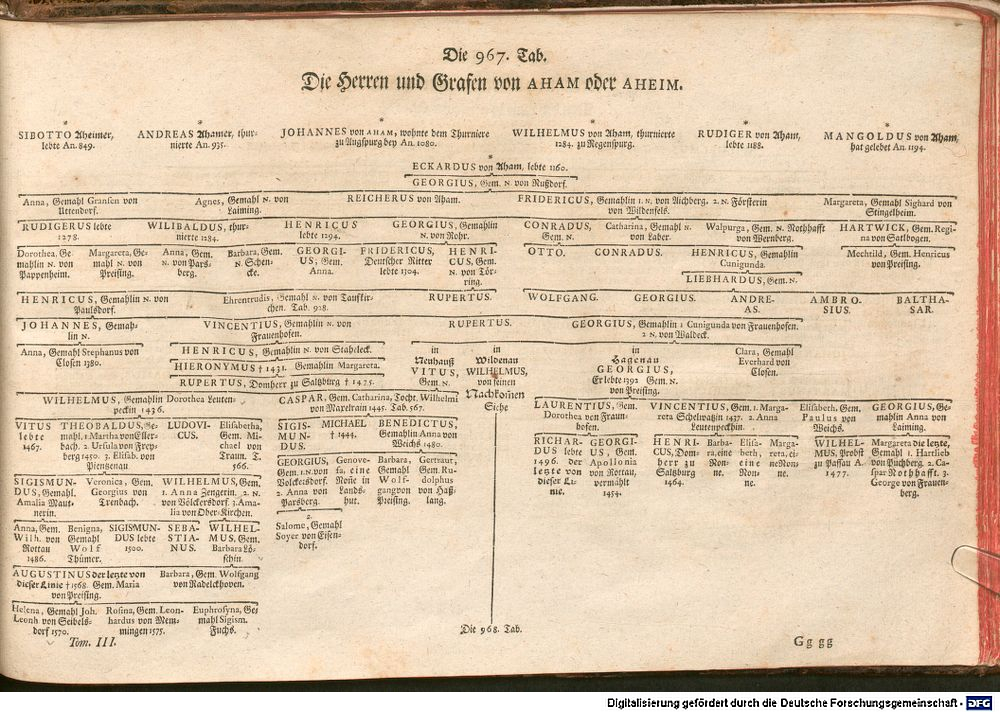 Die 967. Tab.
Die Herren und Grafen von AHAM oder AHEIM.
* * * * * *
SIBOTTO Aheimer,
lebte An. 849.
ANDREAS Ahamer, thur-
nierte An. 935.
JOHANNES von AHAM, wohnte dem Thurniere
zu Augspurg bey An. 1080.
WILHELMUS von Aham, thurnierte
1284. zu Regenspurg.
RUDIGER von Aham,
lebte 1188.
MANGOLDUS von Aham,
hat gelebet An. 1194.
*
ECKARDUS von Aham, lebte 1160.
GEORGIUS, Gem. N von Rußdorf.
Anna, Gemahl Gransen von
Uttendorf.
Agnes, Gemahl N. von
Laiming.
REICHERUS von Aham.
FRIDERICUS, Gemahlin 1. N. von Aichberg. 2. N. Försterin
von Wildenfels.
Margareta, Gemahl Sighard von
Stingelheim.
RUDIGERUS lebte
1278.
WILIBALDUS, thur-
nierte 1284.
HENRICUS
lebte 1294.
GEORGIUS, Gemahlin
N. von Rohr.
CONRADUS,
Gem. N.
Catharina, Gemahl N.
von Laber.
Walpurga, Gem. N. Nothhafft
von Wernberg.
HARTWICK, Gem. Regi-
na von Satlbogen.
Dorothea, Ge-
mahlin N. von
Pappenheim.
Margareta, Ge-
mahl N. von
Preising.
Anna, Gem.
N. von Pars-
berg.
Barbara, Gem.
N. Schen-
cke.
GEORGI-
US, Gem.
Anna.
FRIDERICUS,
Deutscher Ritter
lebte 1304.
HENRI-
CUS, Gem.
N. von Tör-
ring.
OTTO.
CONRADUS.
HENRICUS, Gemahlin
Cunigunda.
Mechtild, Gem. Henricus
von Preising.
LIEBHARDUS, Gem. N.
HENRICUS, Gemahlin N. von
Paulsdorf.
Ehrentrudis, Gemahl N. von Taufkir-
chen. Tab. 928.
RUPERTUS.
WOLFGANG.
GEORGIUS.
ANDRE-
AS.
AMBRO-
SIUS.
BALTHA-
SAR.
JOHANNES, Gemah-
lin N.
VINCENTIUS, Gemahlin N. von
Frauenhofen.
RUPERTUS.
GEORGIUS, Gemahlin 1 Cunigunda von Frauenhofen.
2 N. von Waldeck.
Anna, Gemahl Stephanus von
Closen 1380.
HENRICUS, Gemahlin N. von Staheleck.
HIERONYMUS † 1431. Gemahlin Margareta.
RUPERTUS, Domherr zu Saltzburg † 1425.
in
Neuhauß
VITUS,
Gem. N.
in
Wildenau
WILHELMUS,
von seinen
Nachkomen
Siehe
in
Hagenau
GEORGIUS,
Er lebte 1392 Gem. N.
von Preising.
Clara, Gemahl
Everhard von
Closen.
WILHELMUS, Gemahlin Dorothea Leuten-
peckin 1436.
CASPAR, Gem. Catharina, Tocht. Wilhelmi
von Maxelrain 1445. Tab. 567.
LAURENTIUS, Gem.
Dorothea von Fraun-
hofen.
VINCENTIUS, Gem. 1. Marga-
reta Schelwatzin 1437. 2. Anna
Leutenpeckin.
Elisabeth. Gem.
Paulus von
Weichs.
GEORGIUS, Ge-
mahlin Anna von
Laiming.
VITUS
lebte
1467.
THEOBALDUS, Ge-
mahl. 1 Martha von Eller-
bach. 2 Ursula von Frey-
berg 1450. 3. Elisab. von
Pientzenau.
LUDOVI-
CUS.
Elisabetha,
Gem. Mi-
chael von
Traun. T.
566.
SIGIS-
MUN-
DUS.
MICHAEL
† 1444.
BENEDICTUS,
Gemahlin Anna von
Weichs 1480.
RICHAR-
DUS lebte
1496. der
letzte von
dieser Li-
nie.
GEORGI-
US, Gem.
Apollonia
von Rottau,
vermählt
1454.
HENRI-
CUS, Dom-
herr zu
Saltzburg
1464.
Barba-
ra, eine
Non-
ne.
Elisa-
beth,
eine
Non-
ne.
Marga-
reta, ei-
ne Non-
ne.
WILHEL-
MUS, Probst
zu Passau A.
1477.
Margareta die letzte,
Gemahl 1. Hartlieb
von Puchberg. 2. Ca-
spar Nothhafft. 3.
George von Frauen-
berg.
SIGISMUN-
DUS, Gemahl.
Amalia Maut-
nerin.
Veronica, Gem.
Georgius von
Trenbach.
WILHELMUS, Gem.
1. Anna Zengerin. 2. N.
von Völckersdorf. 3. Ama-
lia von Ober-Kirchen.
GEORGIUS,
Gem. 1. N. von
Volckersdorf.
2. Anna von
Parsberg.
Genove-
fa, eine
Nonne in
Lands-
hut.
Barbara,
Gemahl
Wolf-
gang von
Preising.
Gertraut,
Gem. Ru-
dolphus
von Haß-
lang.
2.
Salome, Gemahl
Soyer von Eisen-
dorf.
Anna, Gem.
Wilh. von
Rottau
1486.
Benigna,
Gemahl
Wolf
Thümer.
SIGISMUN-
DUS lebte
1500.
SEBA-
STIA-
NUS.
WILHEL-
MUS, Gem.
Barbara Lö-
schin.
AUGUSTINUS der letzte von
dieser Linie † 1568. Gem. Maria
von Preising.
Barbara, Gem. Wolfgang
von Nadelckhoven.
Helena, Gemahl Joh.
Leonh von Seibels-
dorf 1570.
Rosina, Gem. Leon-
hardus von Mem-
mingen 1575.
Euphrosyna, Ge-
mahl Sigism.
Fuchs.
Die 968. Tab.
Tom. III.
Gg gg
Digitalisierung gefördert durch die Deutsche Forschungsgemeinschaft - DFG